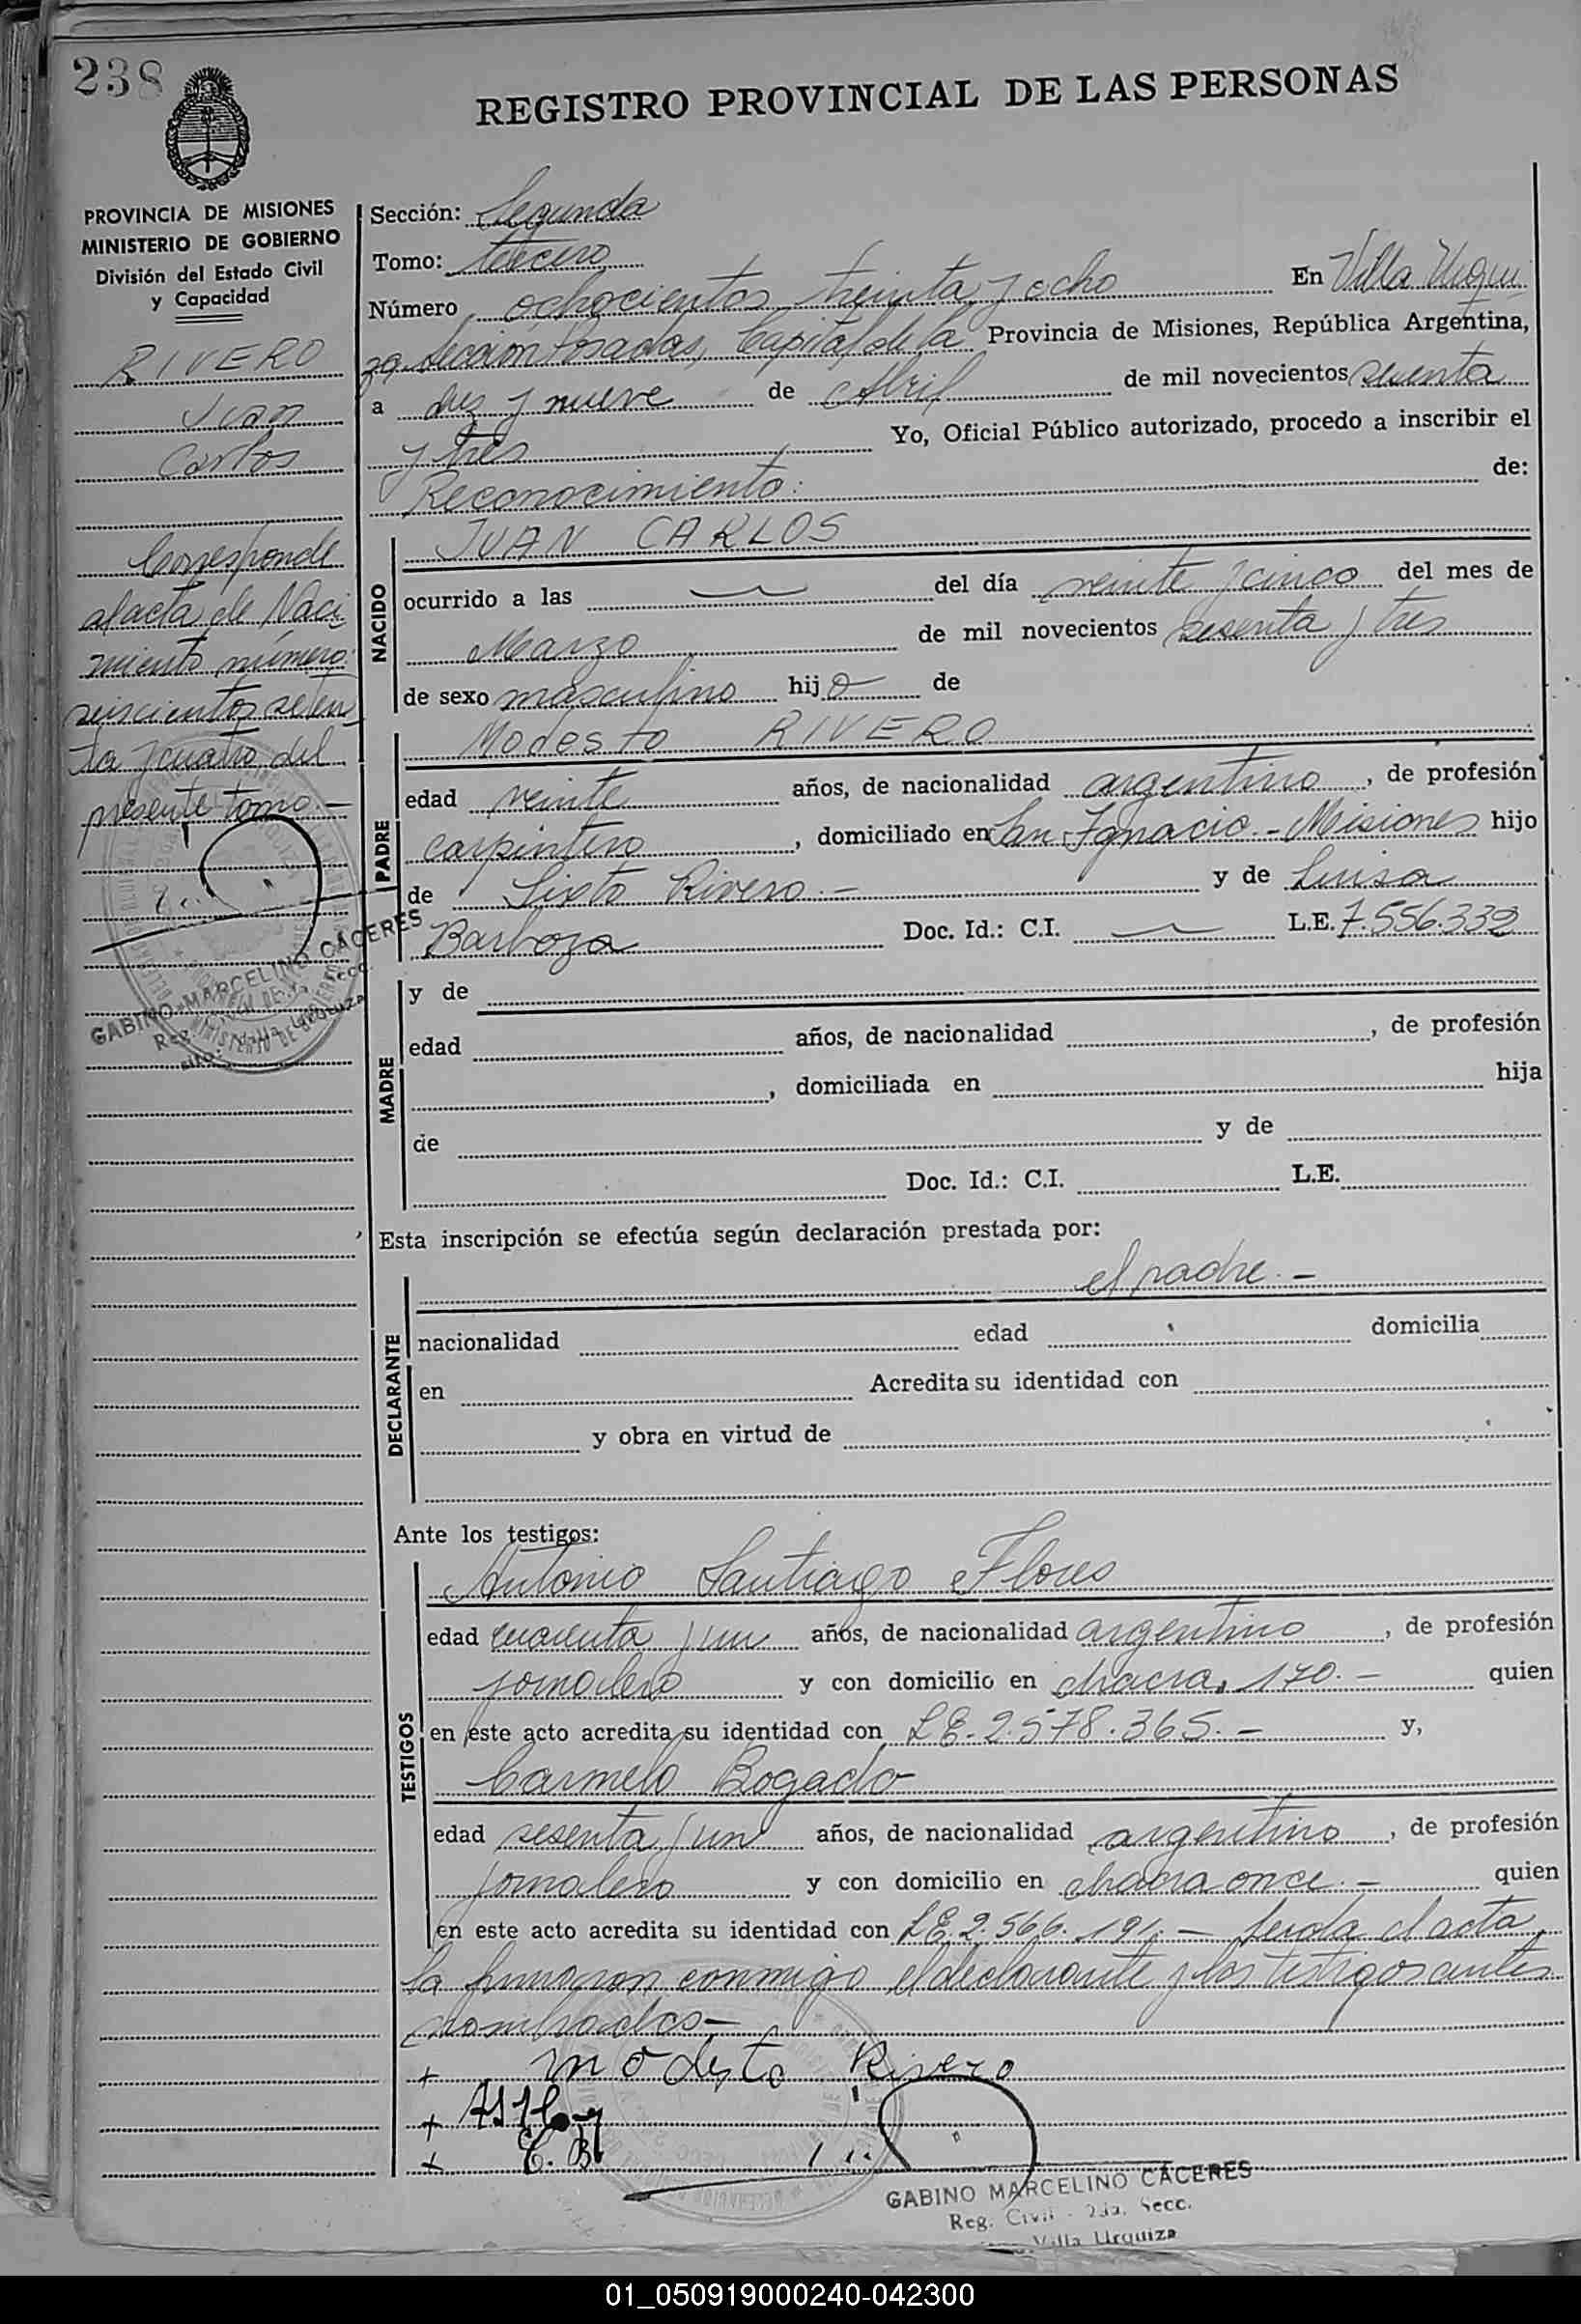 238
REGISTRO PROVINCIAL DE LAS PERSONAS
PROVINCIA DE MISIONES
MINISTERIO DE GOBIERNO
División del Estado Civil
y Capacidad
RIVERO
Juan
Carlos
Corresponde
al acta de Naci
miento número:
seiscientos seten
ta y cuatro del
presente tomo.-
GABINO MARCELINO CACERES
Sección: Segunda
Tomo: tercero
Número ochocientos treinta y ocho En Villa Urqui
za sección Posadas, Capital de la Provincia de Misiones, República Argentina,
a diez y nueve de Abril de mil novecientos sesenta
y tres Yo, Oficial Público autorizado, procedo a inscribir el
Reconocimiento: de:
NACIDO
JUAN CARLOS
ocurrido a las del día veinte y cinco del mes de
Marzo de mil novecientos sesenta y tres
de sexo masculino hijo de
PADRE
Modesto RIVERO
edad veinte años, de nacionalidad argentino, de profesión
carpintero, domiciliado en San Ignacio - Misiones hijo
de Sixto Rivero.- y de Luisa
Barboza Doc. Id.: C.I. L.E. 7.556.332
MADRE
y de
edad años, de nacionalidad , de profesión
, domiciliada en hija
de y de
Doc. Id.: C.I. L.E.
Esta inscripción se efectúa según declaración prestada por:
DECLARANTE
el padre.-
nacionalidad edad domicilia
en Acredita su identidad con
y obra en virtud de
Ante los testigos:
TESTIGOS
Antonio Santiago Flores
edad cuarenta y un años, de nacionalidad argentino, de profesión
jornalero y con domicilio en chacra 170.- quien
en este acto acredita su identidad con LE. 2.578.365.- y,
Carmelo Bogado
edad sesenta y un años, de nacionalidad argentino, de profesión
jornalero y con domicilio en chacra once.- quien
en este acto acredita su identidad con LE. 2.566.191.- Leida el acta
la firmaron conmigo el declarante y los testigos antes
nombrados.-
+ modesto Rivero
+
+ C. B
GABINO MARCELINO CACERES
Reg. Civil - 2da. Secc.
Villa Urquiza
01_050919000240-042300